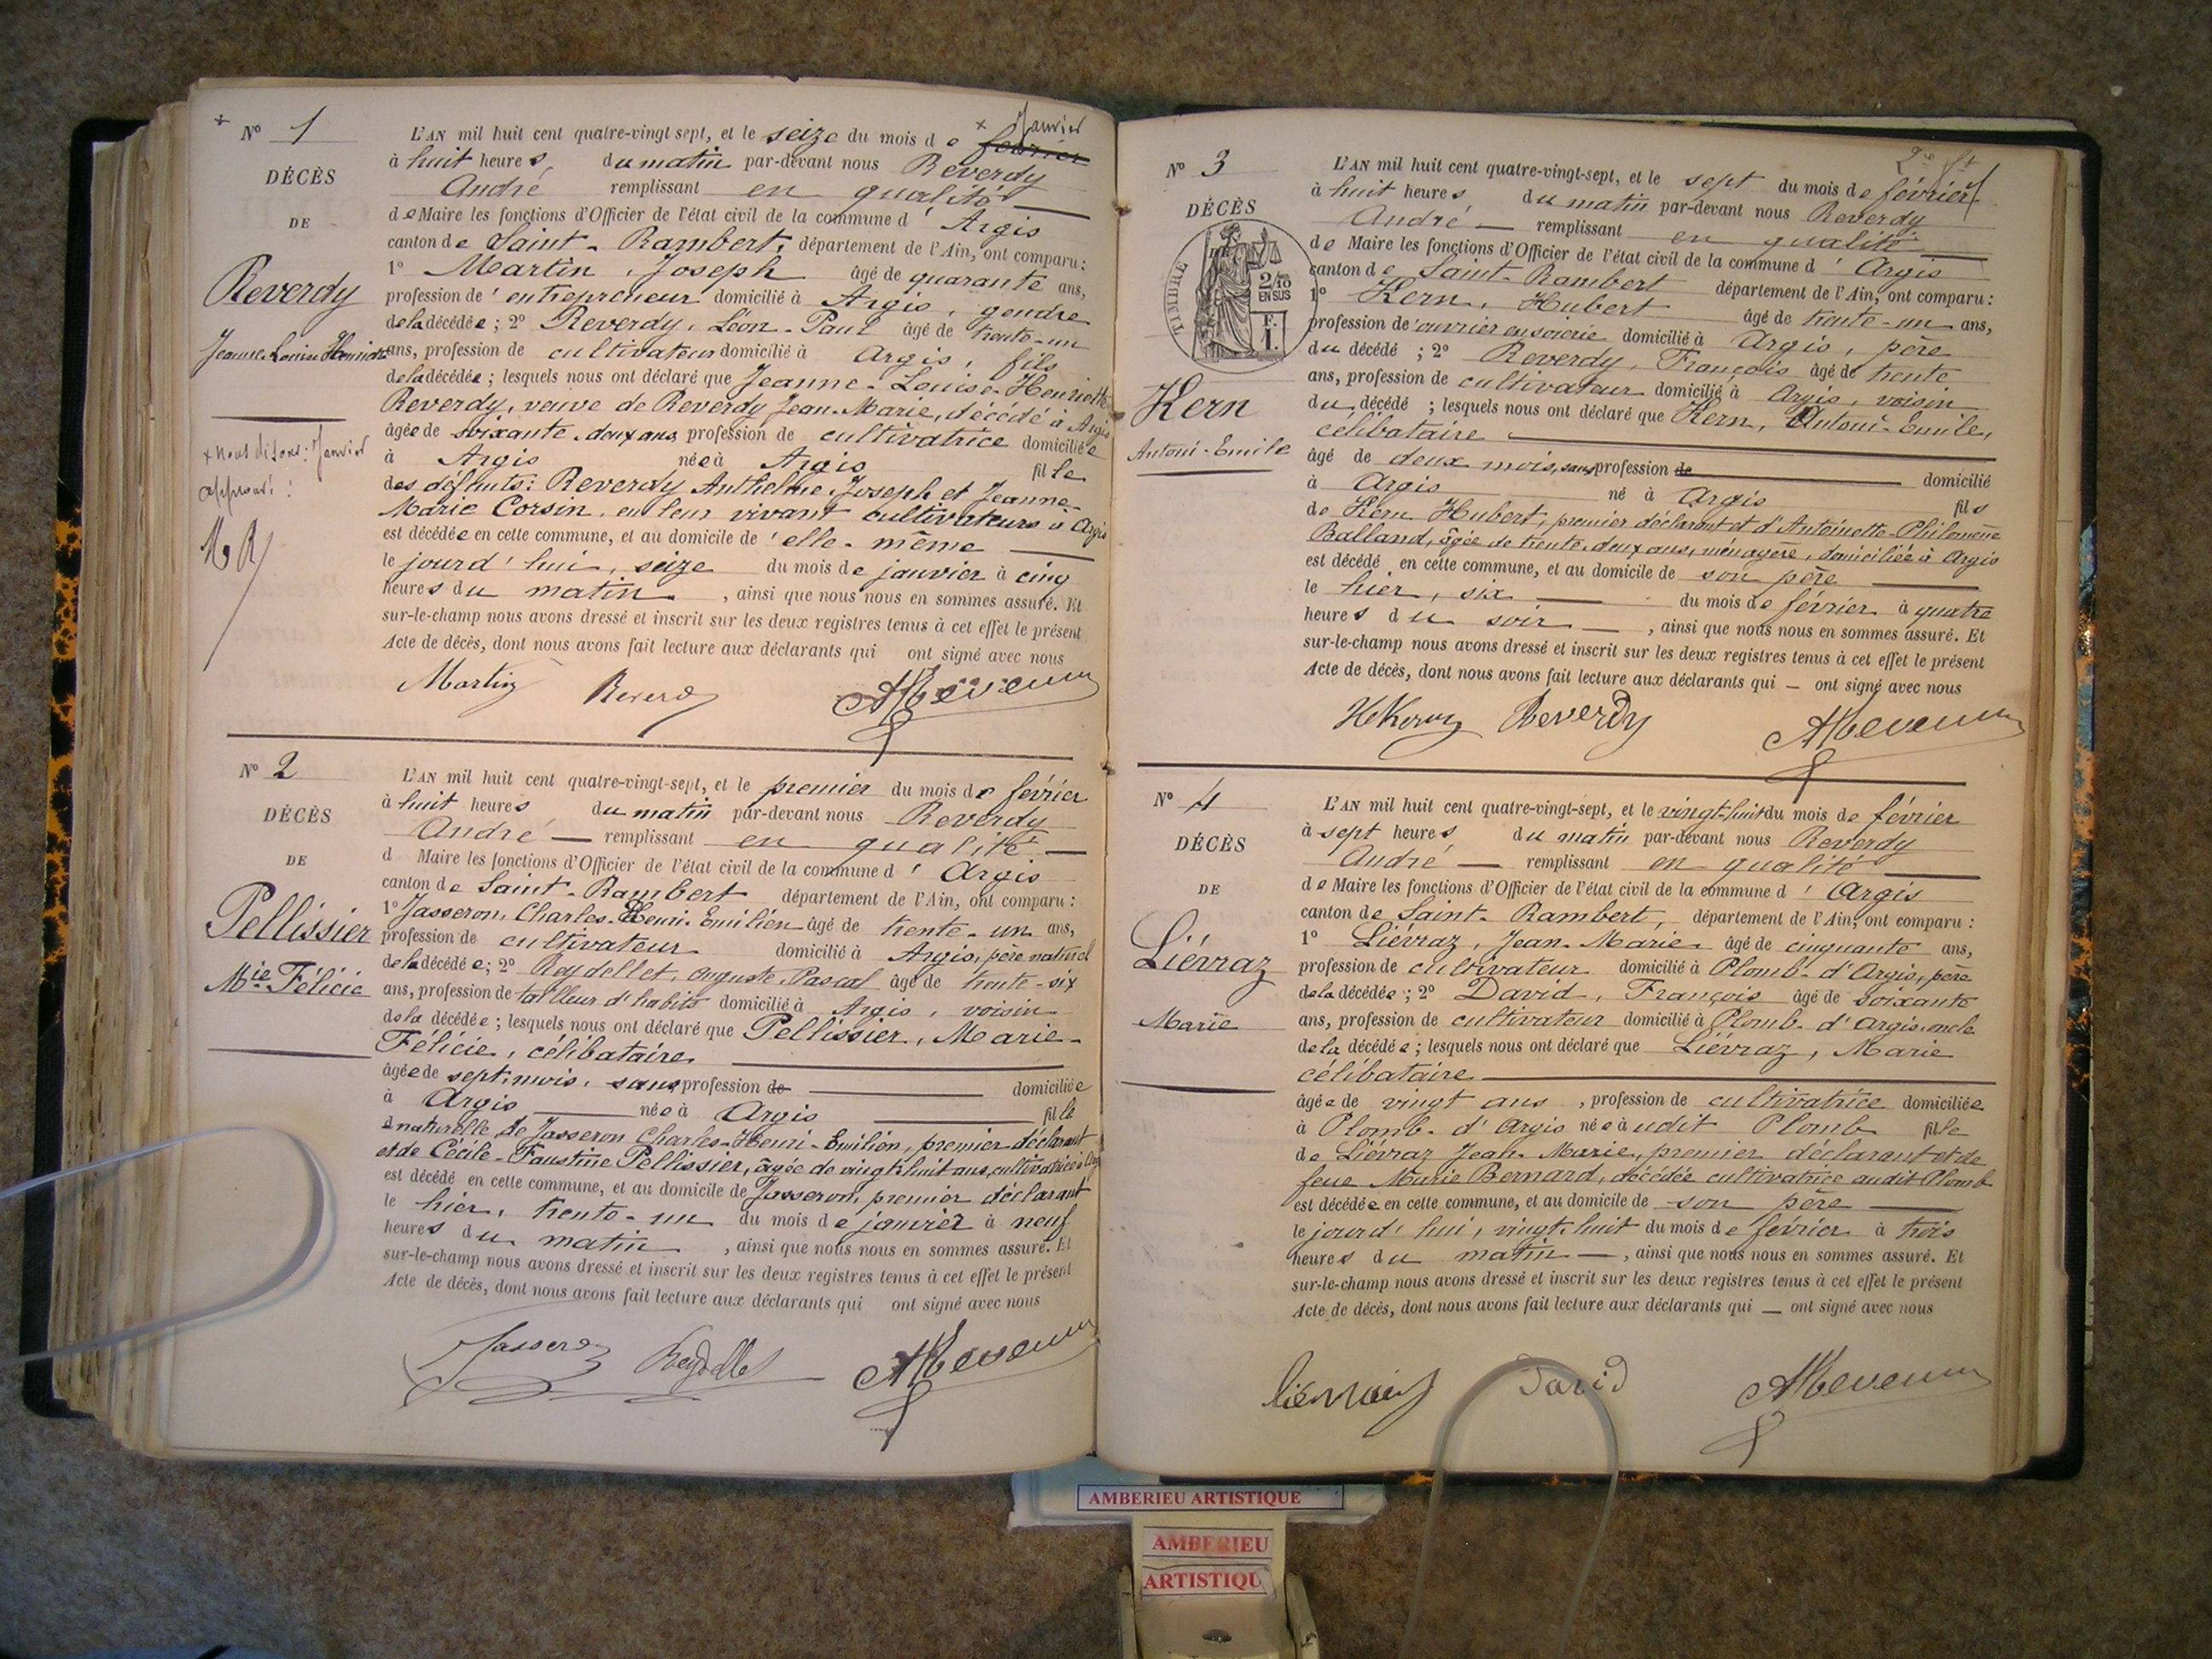 + N° 1
DÉCÈS
DE
Reverdy
Jeanne Louise Henriette
+ nous disons : Janvier
approuvé :
L'AN mil huit cent quatre-vingt sept, et le seize du mois de + Janvier février
à huit heures du matin par-devant nous Reverdy
André remplissant en qualité
de Maire les fonctions d'Officier de l'état civil de la commune d'Argis
canton de Saint-Rambert, département de l'Ain, ont comparu :
1° Martin, Joseph âgé de quarante ans,
profession d'entrepreneur domicilié à Argis, gendre
de la décédée ; 2° Reverdy, Léon-Paul âgé de trente-un
ans, profession de cultivateur domicilié à Argis, fils
de la décédée ; lesquels nous ont déclaré que Jeanne-Louise-Henriette
Reverdy, veuve de Reverdy Jean-Marie, décédé à Argis
âgée de soixante-deux ans, profession de cultivatrice domiciliée
à Argis née à Argis fille
des défunts : Reverdy Anthelme-Joseph et Jeanne-
Marie Corsin, en leur vivant cultivateurs à Argis
est décédée en cette commune, et au domicile d'elle-même
le jourd'hui, seize du mois de janvier à cinq
heures du matin, ainsi que nous nous en sommes assuré. Et
sur-le-champ nous avons dressé et inscrit sur les deux registres tenus à cet effet le présent
Acte de décès, dont nous avons fait lecture aux déclarants qui ont signé avec nous
Martin Reverdy
N° 2
DÉCÈS
DE
Pellissier
Mie Félicie
L'AN mil huit cent quatre-vingt-sept, et le premier du mois de février
à huit heures du matin par-devant nous Reverdy
André remplissant en qualité
d Maire les fonctions d'Officier de l'état civil de la commune d'Argis
canton de Saint-Rambert département de l'Ain, ont comparu :
1° Jasseron, Charles-Henri-Emilien âgé de trente-un ans,
profession de cultivateur domicilié à Argis, père naturel
de la décédée ; 2° Reydellet, Auguste-Pascal âgé de trente-six
ans, profession de tailleur d'habits domicilié à Argis, voisin
de la décédée ; lesquels nous ont déclaré que Pellissier, Marie-
Félicie, célibataire
âgée de sept mois, sans profession de domiciliée
à Argis née à Argis fille
naturelle de Jasseron Charles-Henri-Emilien, premier déclarant
et de Cécile-Faustine Pellissier, âgée de vingt-huit ans, cultivatrice à Argis
est décédé en cette commune, et au domicile de Jasseron, premier déclarant
le hier, trente-un du mois de janvier à neuf
heures du matin, ainsi que nous nous en sommes assuré. Et
sur-le-champ nous avons dressé et inscrit sur les deux registres tenus à cet effet le présent
Acte de décès, dont nous avons fait lecture aux déclarants qui ont signé avec nous
Jasseron Reydellet
N° 3
DÉCÈS
TIMBRE
2/10
EN SUS
F.
1.
Kern
Antoni-Emile
L'AN mil huit cent quatre-vingt-sept, et le sept du mois de février
à huit heures du matin par-devant nous Reverdy
André remplissant en qualité
de Maire les fonctions d'Officier de l'état civil de la commune d'Argis
canton de Saint-Rambert département de l'Ain, ont comparu :
1° Kern, Hubert âgé de trente-un ans,
profession d'ouvrier en soierie domicilié à Argis, père
du décédé ; 2° Reverdy, François âgé de trente
ans, profession de cultivateur domicilié à Argis, voisin
du décédé ; lesquels nous ont déclaré que Kern, Antoni-Emile,
célibataire
âgé de deux mois, sans profession de domicilié
à Argis né à Argis fils
de Kern Hubert, premier déclarant et d'Antoinette-Philomène
Balland, âgée de trente-deux ans, ménagère, domiciliée à Argis
est décédé en cette commune, et au domicile de son père
le hier, six du mois de février à quatre
heures du soir, ainsi que nous nous en sommes assuré. Et
sur-le-champ nous avons dressé et inscrit sur les deux registres tenus à cet effet le présent
Acte de décès, dont nous avons fait lecture aux déclarants qui — ont signé avec nous
HKern Reverdy
N° 4
DÉCÈS
DE
Liévraz
Marie
L'AN mil huit cent quatre-vingt-sept, et le vingt-huit du mois de février
à sept heures du matin par-devant nous Reverdy
André remplissant en qualité
de Maire les fonctions d'Officier de l'état civil de la commune d'Argis
canton de Saint-Rambert, département de l'Ain, ont comparu :
1° Liévraz, Jean-Marie âgé de cinquante ans,
profession de cultivateur domicilié à Plomb-d'Argis, père
de la décédée ; 2° David, François âgé de soixante
ans, profession de cultivateur domicilié à Plomb-d'Argis, oncle
de la décédée ; lesquels nous ont déclaré que Liévraz, Marie
célibataire
âgée de vingt ans, profession de cultivatrice domiciliée
à Plomb-d'Argis née audit Plomb fille
de Liévraz Jean-Marie, premier déclarant et de
feue Marie Bernard, décédée cultivatrice audit Plomb
est décédée en cette commune, et au domicile de son père
le jourd'hui, vingt-huit du mois de février à trois
heures du matin —, ainsi que nous nous en sommes assuré. Et
sur-le-champ nous avons dressé et inscrit sur les deux registres tenus à cet effet le présent
Acte de décès, dont nous avons fait lecture aux déclarants qui — ont signé avec nous
David
AMBERIEU ARTISTIQUE
AMBERIEU
ARTISTIQU